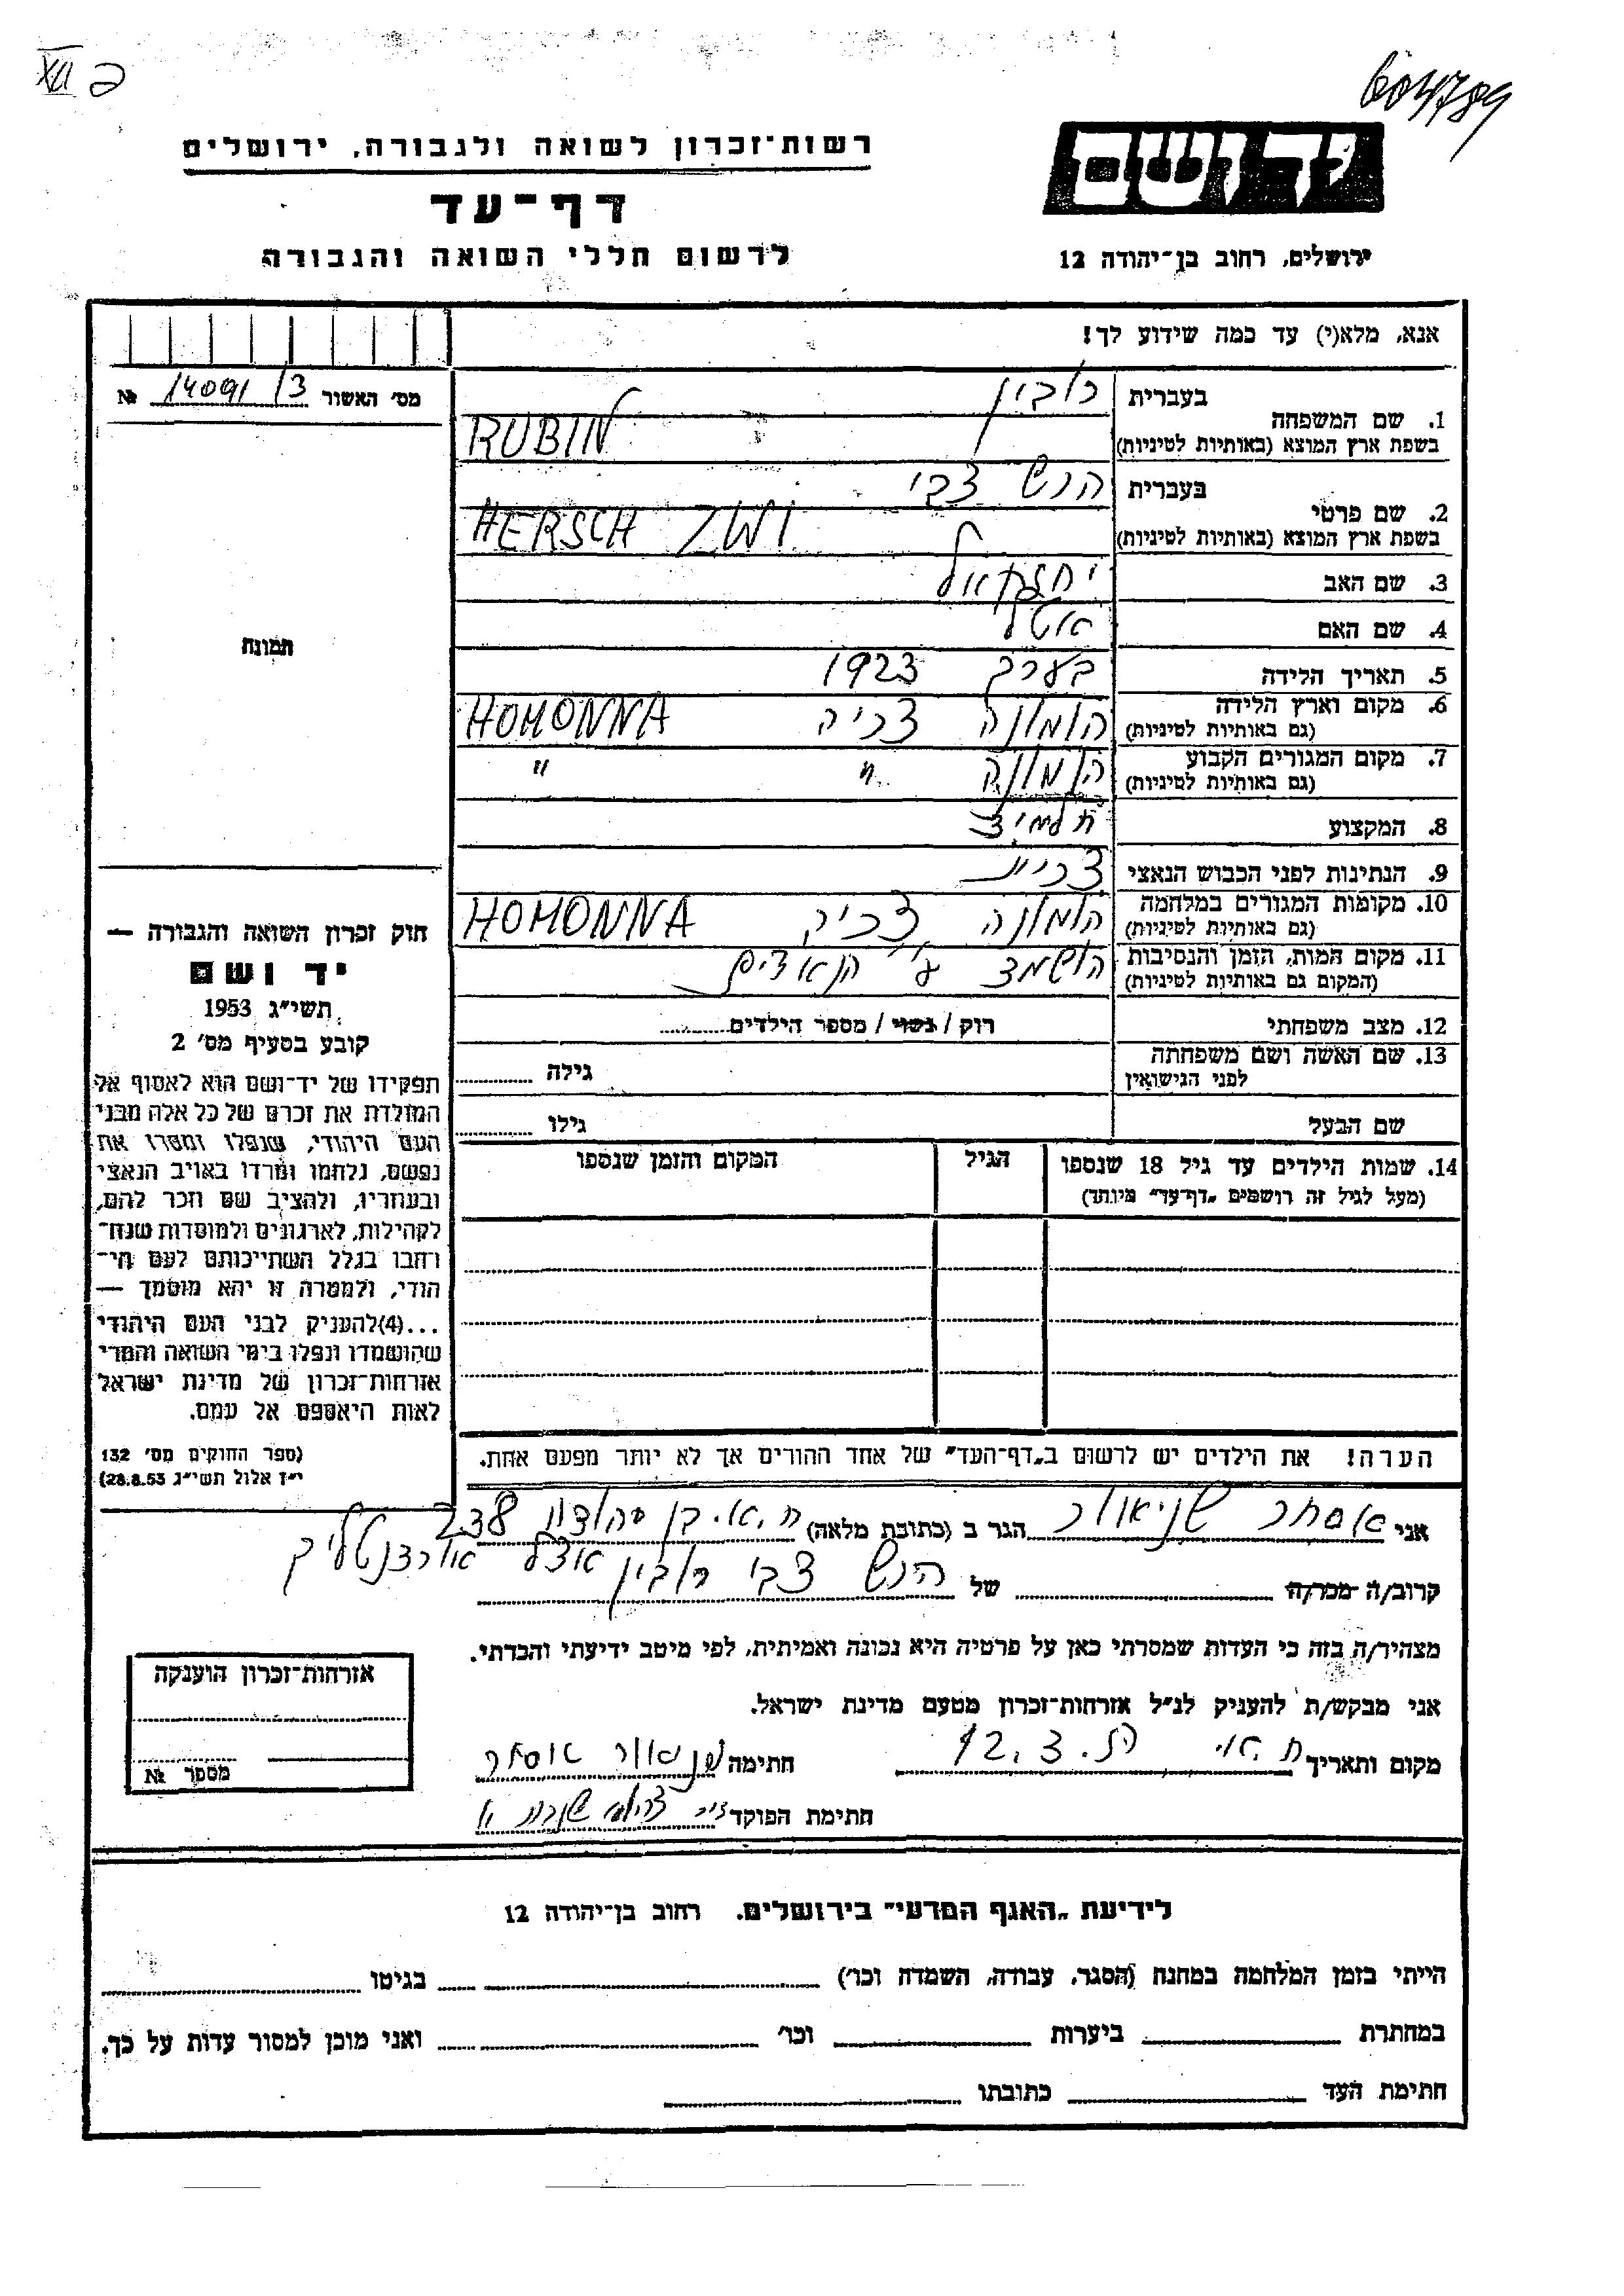 XII
604789
רשות־זכרון לשואה ולגבורה, ירושלים
יד ושם
דף־עד
לרשום חללי השואה והגבורה
ירושלים, רחוב בן־יהודה 12
אנא, מלא(י) עד כמה שידוע לך!
מס׳ האשור 14091/3 №
1. שם המשפחה
בעברית רובין
בשפת ארץ המוצא (באותיות לטיניות) RUBIN
2. שם פרטי
בעברית הרש צבי
בשפת ארץ המוצא (באותיות לטיניות) HERSCH ZWI
3. שם האב יחזקאל
4. שם האם
5. תאריך הלידה בערך 1923
6. מקום וארץ הלידה הומונה צכיה HOMONNA
(גם באותיות לטיניות)
7. מקום המגורים הקבוע הומונה " "
(גם באותיות לטיניות)
8. המקצוע תלמיד
9. הנתינות לפני הכבוש הנאצי
10. מקומות המגורים במלחמה הומונה צכיה HOMONNA
(גם באותיות לטיניות)
11. מקום המות, הזמן והנסיבות הושמד ע״י הנאצים
(המקום גם באותיות לטיניות)
12. מצב משפחתי רוק / נשוי / מספר הילדים
13. שם האשה ושם משפחתה
לפני הנישואין גילה
שם הבעל גילו
14. שמות הילדים עד גיל 18 שנספו הגיל המקום והזמן שנספו
(מעל לגיל זה רושמים „דף־עד״ מיוחד)
תמונה
חוק זכרון השואה והגבורה —
יד ושם
תשי״ג 1953
קובע בסעיף מס׳ 2
תפקידו של יד־ושם הוא לאסוף אל
המולדת את זכרם של כל אלה מבני
העם היהודי, שנפלו ומסרו את
נפשם, נלחמו ומרדו באויב הנאצי
ובעוזריו, ולהציב שם וזכר להם,
לקהילות, לארגונים ולמוסדות שנח־
רבו בגלל השתייכותם לעם הי־
הודי, ולמטרה זו יהא מוסמך —
...(4)להעניק לבני העם היהודי
שהושמדו ונפלו בימי השואה והמרי
אזרחות־זכרון של מדינת ישראל
לאות היאספם אל עמם.
(ספר החוקים מס׳ 132
י״ז אלול תשי״ג 28.8.53)
הערה! את הילדים יש לרשום ב„דף־העד״ של אחד ההורים אך לא יותר מפעם אחת.
אני אסתר שניאור הגר ב (כתובת מלאה) ת.א. בן 238
אצל
קרוב/ה מכר/ה של הרש צבי רובין
מצהיר/ה בזה כי העדות שמסרתי כאן על פרטיה היא נכונה ואמיתית, לפי מיטב ידיעתי והכרתי.
אני מבקש/ת להעניק לנ״ל אזרחות־זכרון מטעם מדינת ישראל.
מקום ותאריך חתימה שניאור אסתר
חתימת הפוקד
אזרחות־זכרון הוענקה
מספר №
לידיעת „האגף המדעי״ בירושלים. רחוב בן־יהודה 12
הייתי בזמן המלחמה במחנה (הסגר, עבודה, השמדה וכו׳) בגיטו
במחתרת ביערות וכו׳ ואני מוכן למסור עדות על כך.
חתימת העד כתובתו